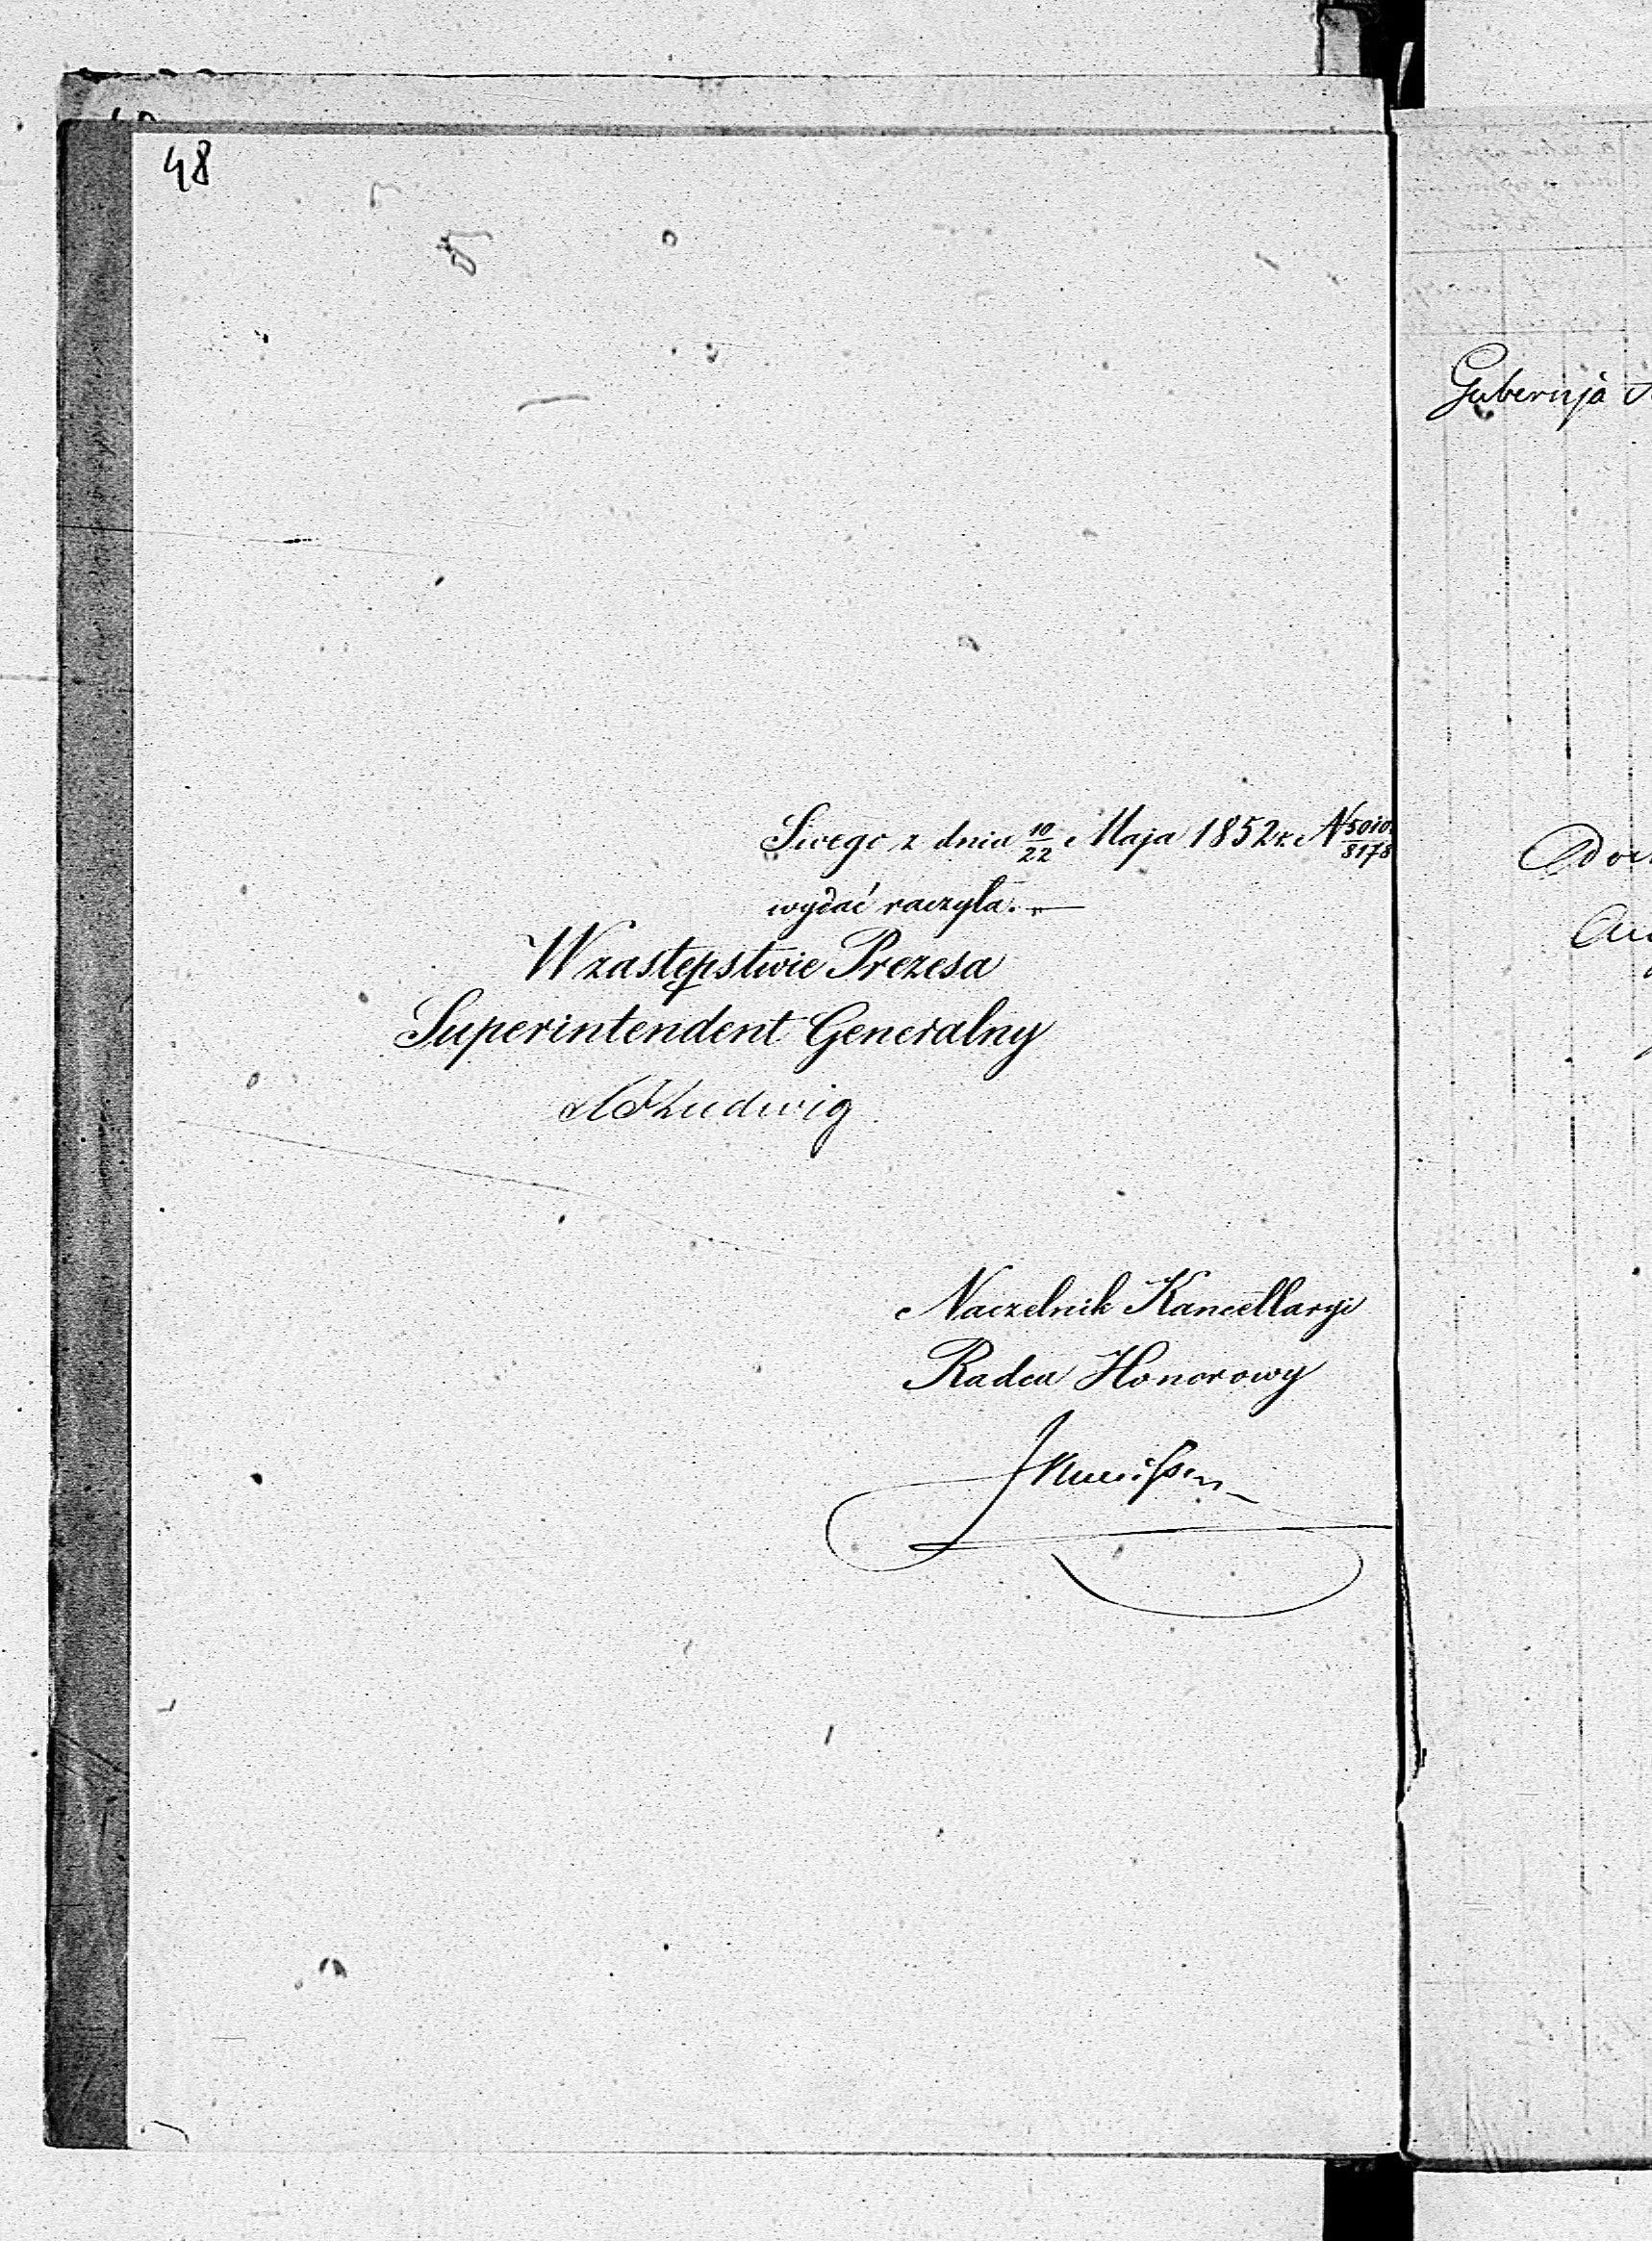 48
Swego z dnia 10/22 Maja 1852 r. N 5010/8178
wydać raczyła.—
W zastępstwie Prezesa
Superintendent Generalny
Ludwig
Naczelnik Kancellaryi
Radca Honorowy
Gubernja